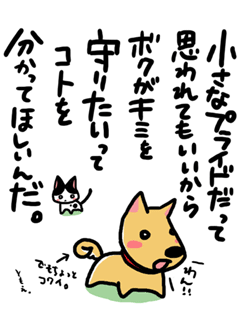 小さなプライドだって
思われてもいいから
ボクがキミを
守りたいって
コトを
分かってほしいんだ。
わん!!
でもちょっと
コワイ。